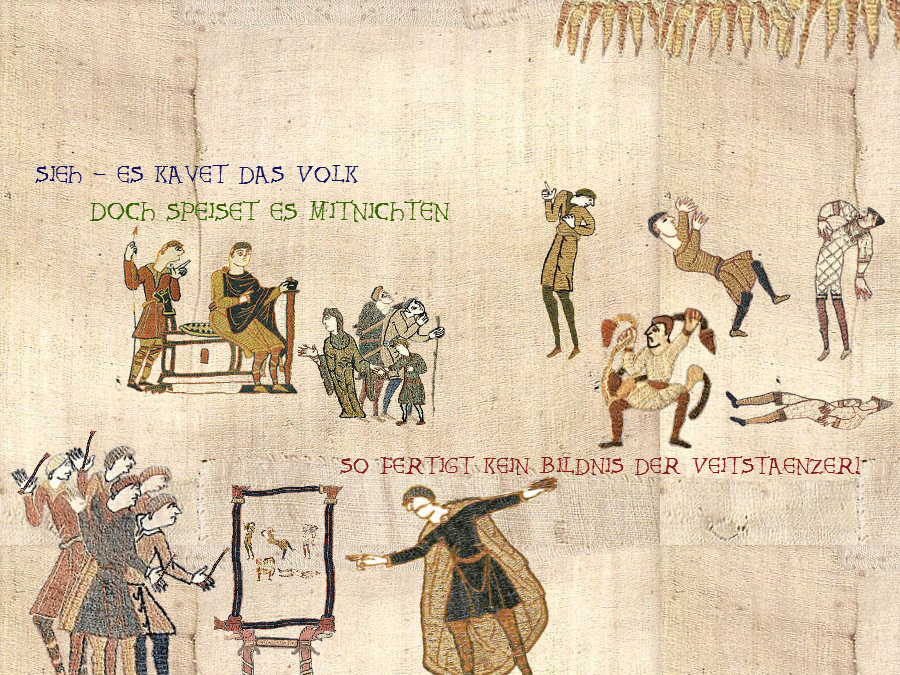 SIEH – ES KAVET DAS VOLK
DOCH SPEISET ES MITNICHTEN
SO FERTIGT KEIN BILDNIS DER VEITSTAENZER!